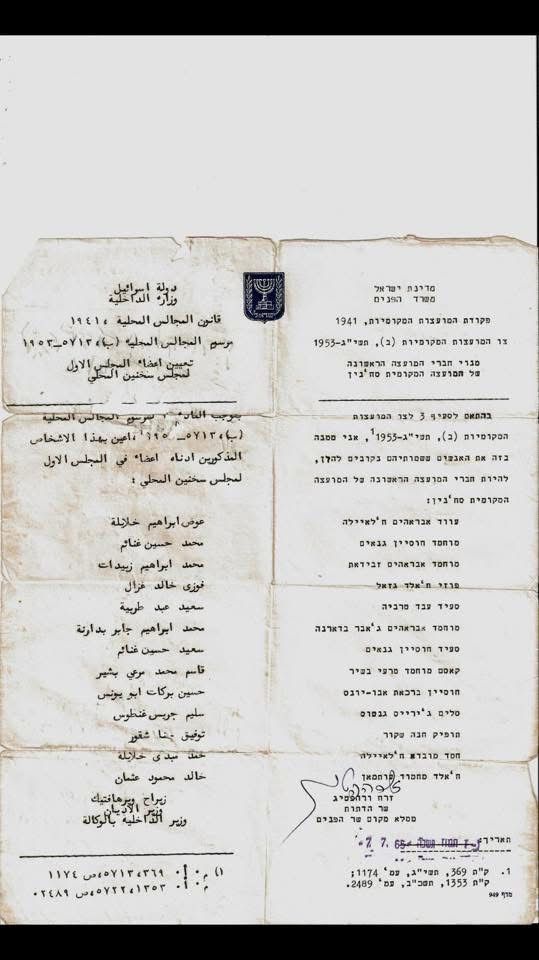 מדינת ישראל
משרד הפנים
פקודת המועצות המקומיות, 1941
צו המועצות המקומיות (ב), תשי"ג-1953
מנוי חברי המועצה הראשונה
של המועצה המקומית סח'נין
בהתאם לסעיף 3 לצו המועצות
המקומיות (ב), תשי"ג-1953¹, אני ממנה
בזה את האנשים ששמותיהם נקובים להלן,
להיות חברי המועצה הראשונה של המועצה
המקומית סח'נין:
עווד אבראהים ח'לאיילה
מוחמד חוסיין גנאים
מוחמד אבראהים זבידאת
פוזי ח'אלד גזאל
סעיד עבד טרביה
מוחמד אבראהים ג'אבר בדארנה
סעיד חוסיין גנאים
קאסם מוחמד מרעי בשיר
חוסיין ברכאת אבו-יונס
סלים ג'יריס גנטוס
תופיק חנה שקור
חמד ח'לאיילה
ח'אלד מחמוד
זרח ורהפטיג
שר הדתות
ממלא מקום שר הפנים
תאריך:
7. 7. 65
1. ק"ת 369, תשי"ג, עמ' 1174;
ק"ת 1353, תשכ"ב, עמ' 2489.
מדף 949
دولة اسرائيل
وزارة الداخلية
قانون المجالس المحلية ،١٩٤١
مرسوم المجالس المحلية (ب)، ٥٧١٣-١٩٥٣
تعيين اعضاء المجلس الاول
لمجلس سخنين المحلي
بموجب لمرسوم المجالس المحلية
(ب)، ٥٧١٣- ،اعين بهذا الاشخاص
المذكورين ادناه اعضاء في المجلس الاول
لمجلس سخنين المحلي :
عوض ابراهيم خلايلة
محمد حسين غنائم
محمد ابراهيم زبيدات
فوزي خالد غزال
سعيد عبد طربية
محمد ابراهيم جابر بدارنة
سعيد حسين غنائم
قاسم محمد مرعي بشير
حسين بركات ابو يونس
سليم جريس غنطوس
توفيق حنا شقور
حمد خلايلة
خالد محمود عثمان
زيراح ويرهافتيك
وزير الاديان
وزير الداخلية بالوكالة
١) م٠ أ٠ ٣٦٩، ٥٧١٣، ص ١١٧٤
م٠ أ٠ ١٣٥٣، ٥٧٢٢، ص ٢٤٨٩٠
ישראל